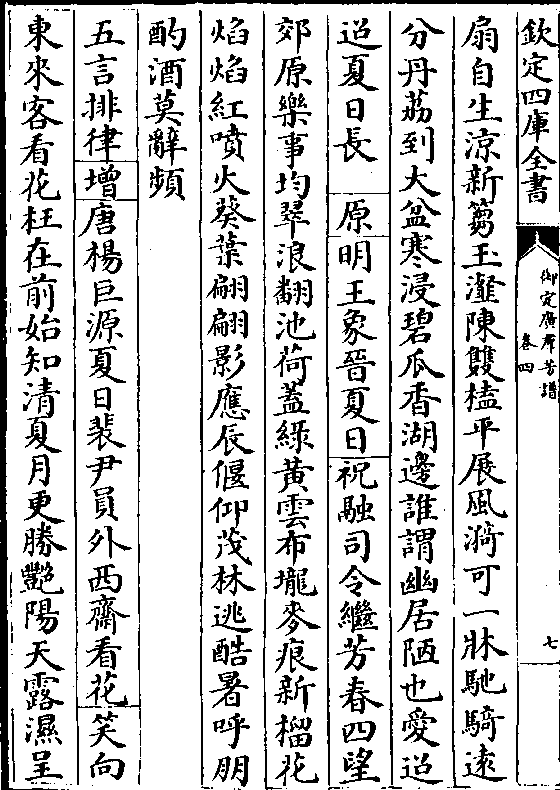 欽定四庫全書
御定廣羣芳譜
卷四
七
扇自生涼新篘玉瀣陳雙榼平展風漪可一牀馳騎遠
分丹荔到大盆寒浸碧瓜香湖邊誰謂幽居陋也愛迢
迢夏日長　原明王象晉夏日祝融司令繼芳春四望
郊原樂事均翠浪翻池荷蓋綠黃雲布壠麥痕新榴花
焰焰紅噴火葵葉翩翩影應辰偃仰茂林逃酷暑呼朋
酌酒莫辭頻
五言排律增唐楊巨源夏日裴尹員外西齋看花笑向
東來客看花枉在前始知清夏月更勝豔陽天露濕呈